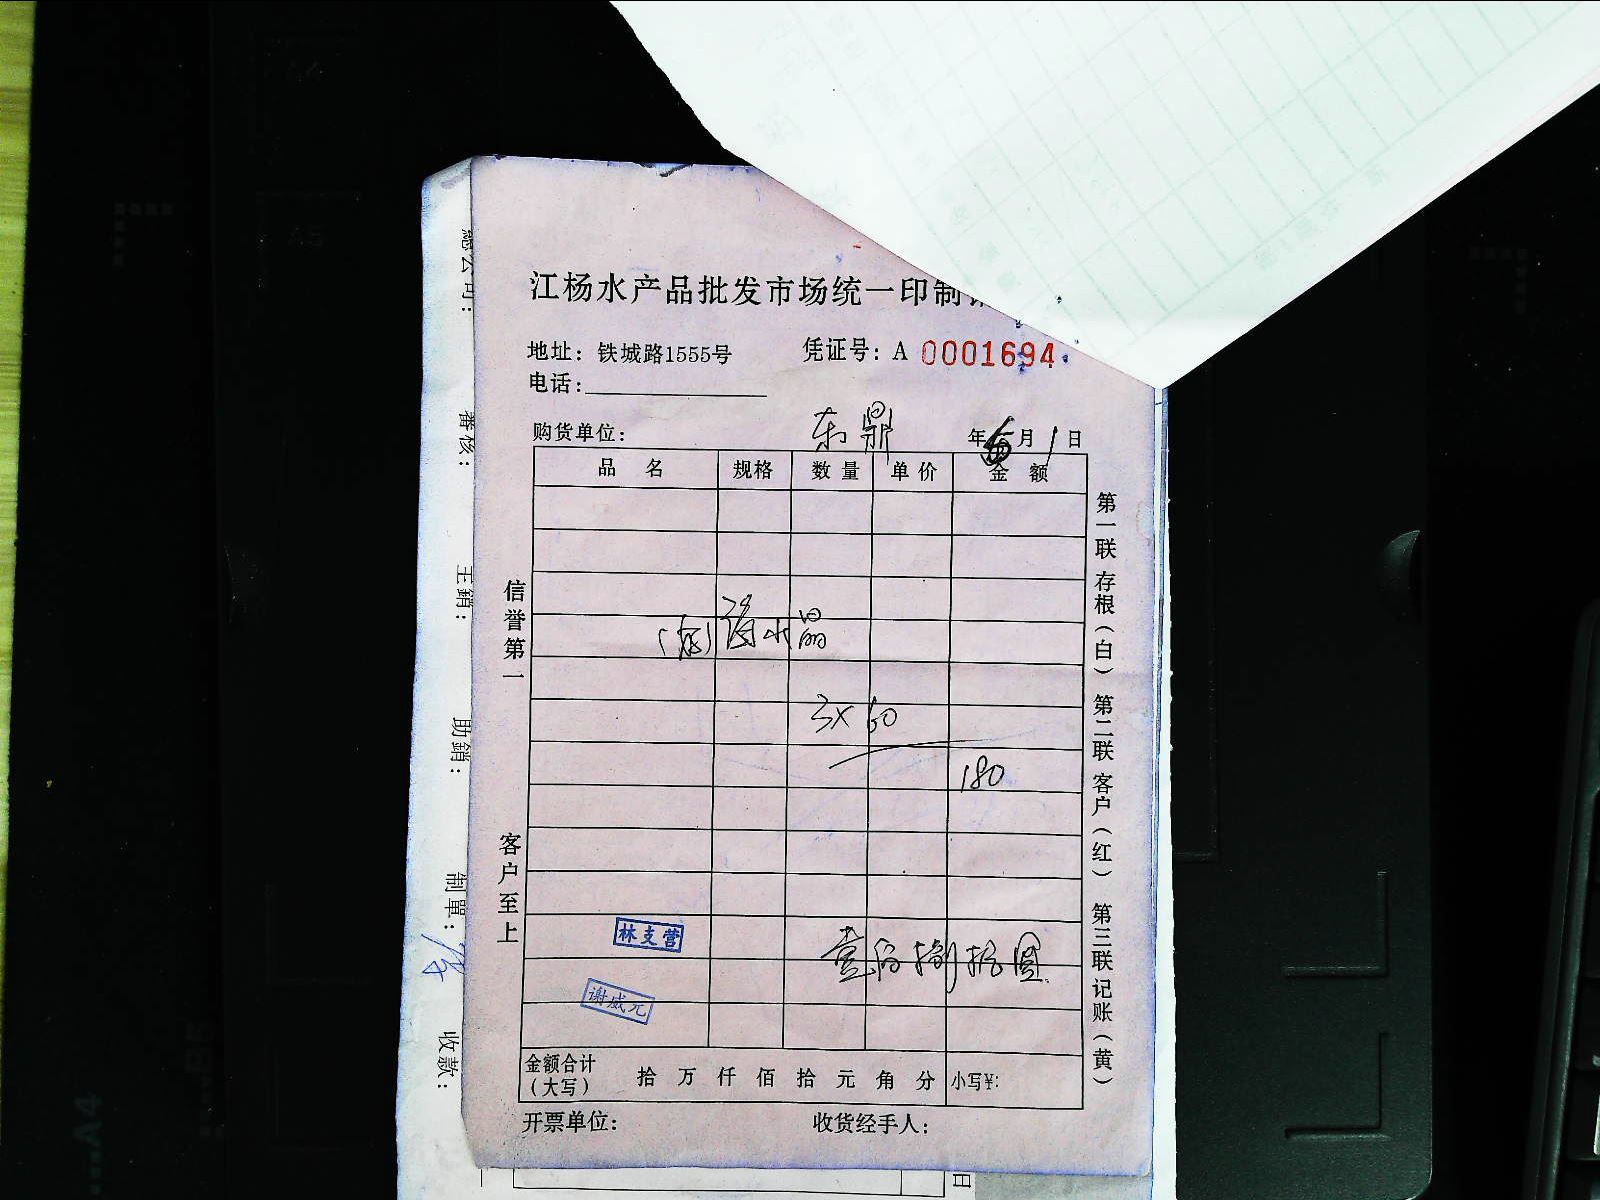 江杨水产品批发市场统一印制
地址：铁城路1555号 凭证号：A 0001694
电话：
购货单位： 东鼎 年 月 1 日
品 名 规格 数量 单价 金 额
水晶
3× 60
180
壹佰捌拾圆
林支营
谢威元
金额合计（大写） 拾 万 仟 佰 拾 元 角 分 小写¥：
开票单位： 收货经手人：
信誉第一
客户至上
第一联 存根（白） 第二联 客户（红） 第三联 记账（黄）
總公司：
審核：
主銷：
助銷：
制單：
收款：
日
A4
A5
A4